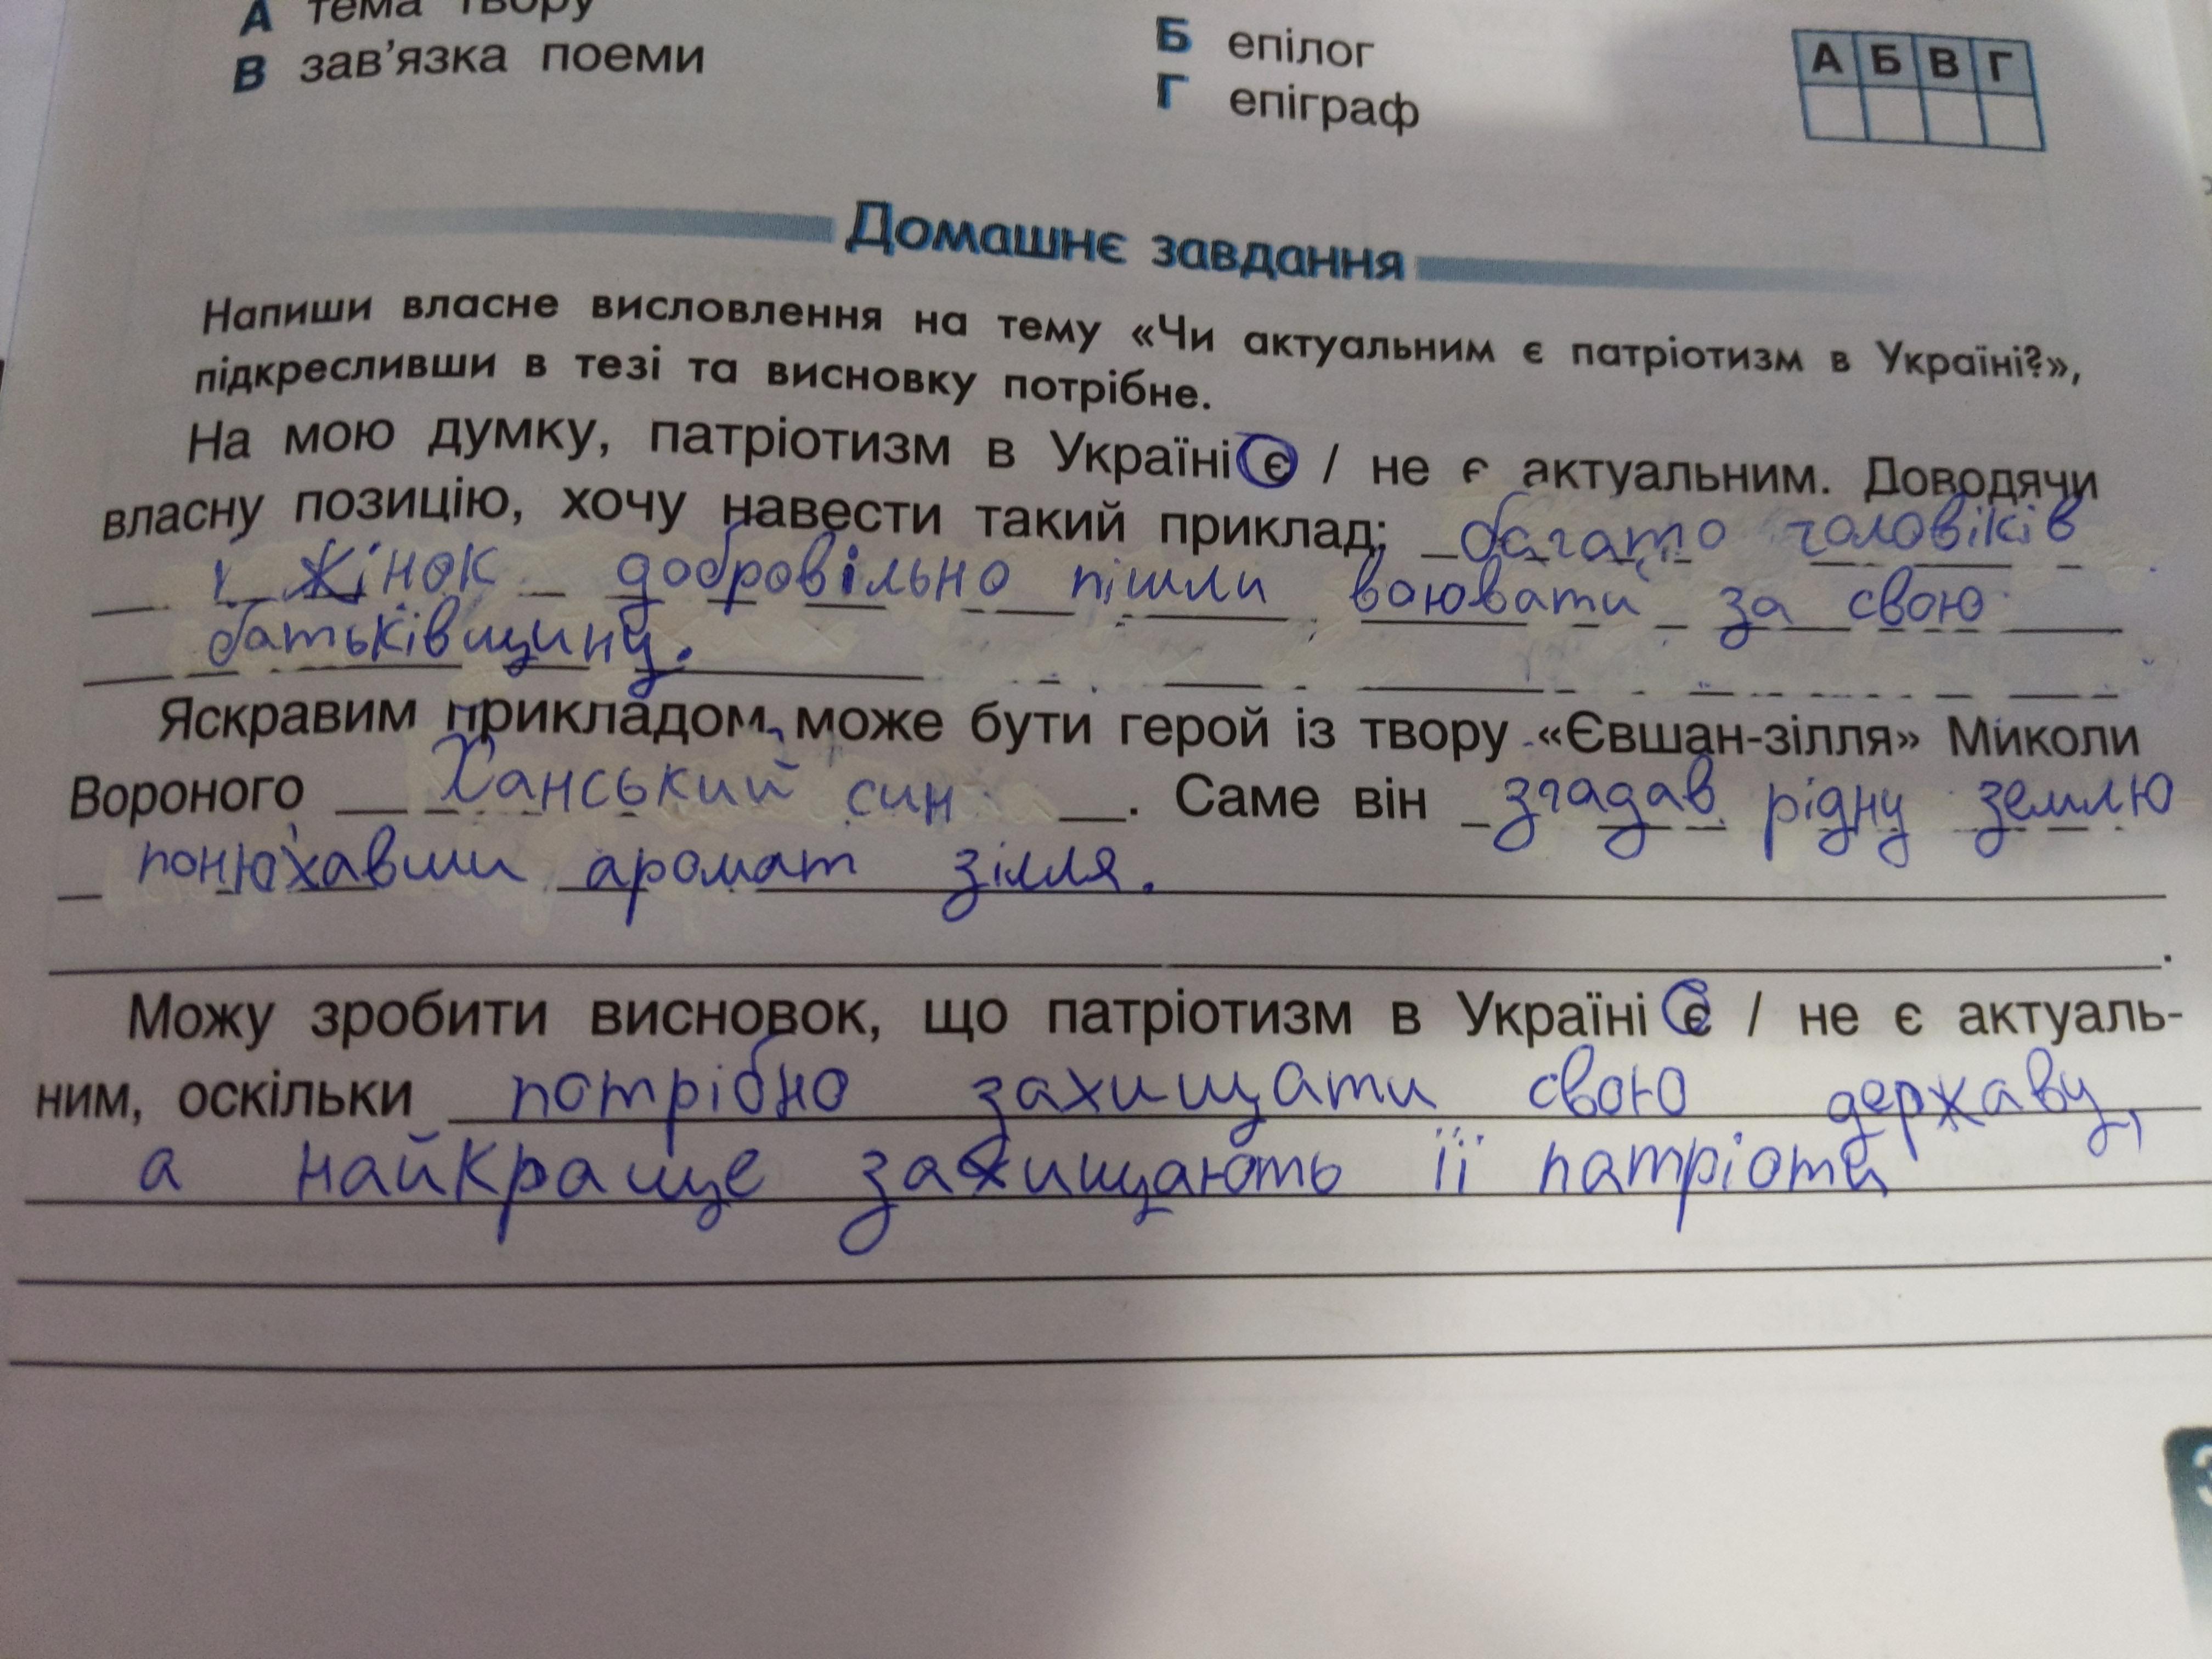 А тема твору
Б епілог
В зав'язка поеми
Г епіграф
А Б В Г
Домашнє завдання
Напиши власне висловлення на тему «Чи актуальним є патріотизм в Україні?»,
підкресливши в тезі та висновку потрібне.
На мою думку, патріотизм в Україні є / не є актуальним. Доводячи
власну позицію, хочу навести такий приклад; багато чоловіків
і жінок добровільно пішли воювати за свою
батьківщину.
Яскравим прикладом може бути герой із твору «Євшан-зілля» Миколи
Вороного Ханський син. Саме він згадав рідну землю
понюхавши аромат зілля.
Можу зробити висновок, що патріотизм в Україні є / не є актуаль-
ним, оскільки потрібно захищати свою державу,
а найкраще захищають її патріоти